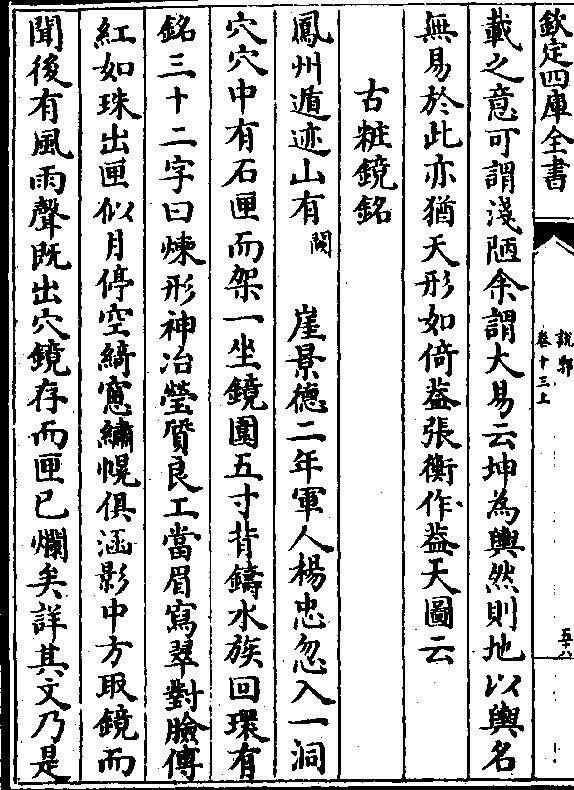 欽定四庫全書
說郛
卷十三上
五十八
載之意可謂淺陋余謂大易云坤為輿然則地以輿名
無易於此亦猶天形如倚葢張衡作葢天圖云
古粧鏡銘
鳳州遁迹山有闕崖景德二年軍人楊忠忽入一洞
穴穴中有石匣而架一坐鏡圍五寸背鑄水族回環有
銘三十二字曰煉形神冶瑩質良工當眉寫翠對臉傳
紅如珠出匣似月停空綺窻繡幌俱涵影中方取鏡而
聞後有風雨聲既出穴鏡存而匣已爛矣詳其文乃是